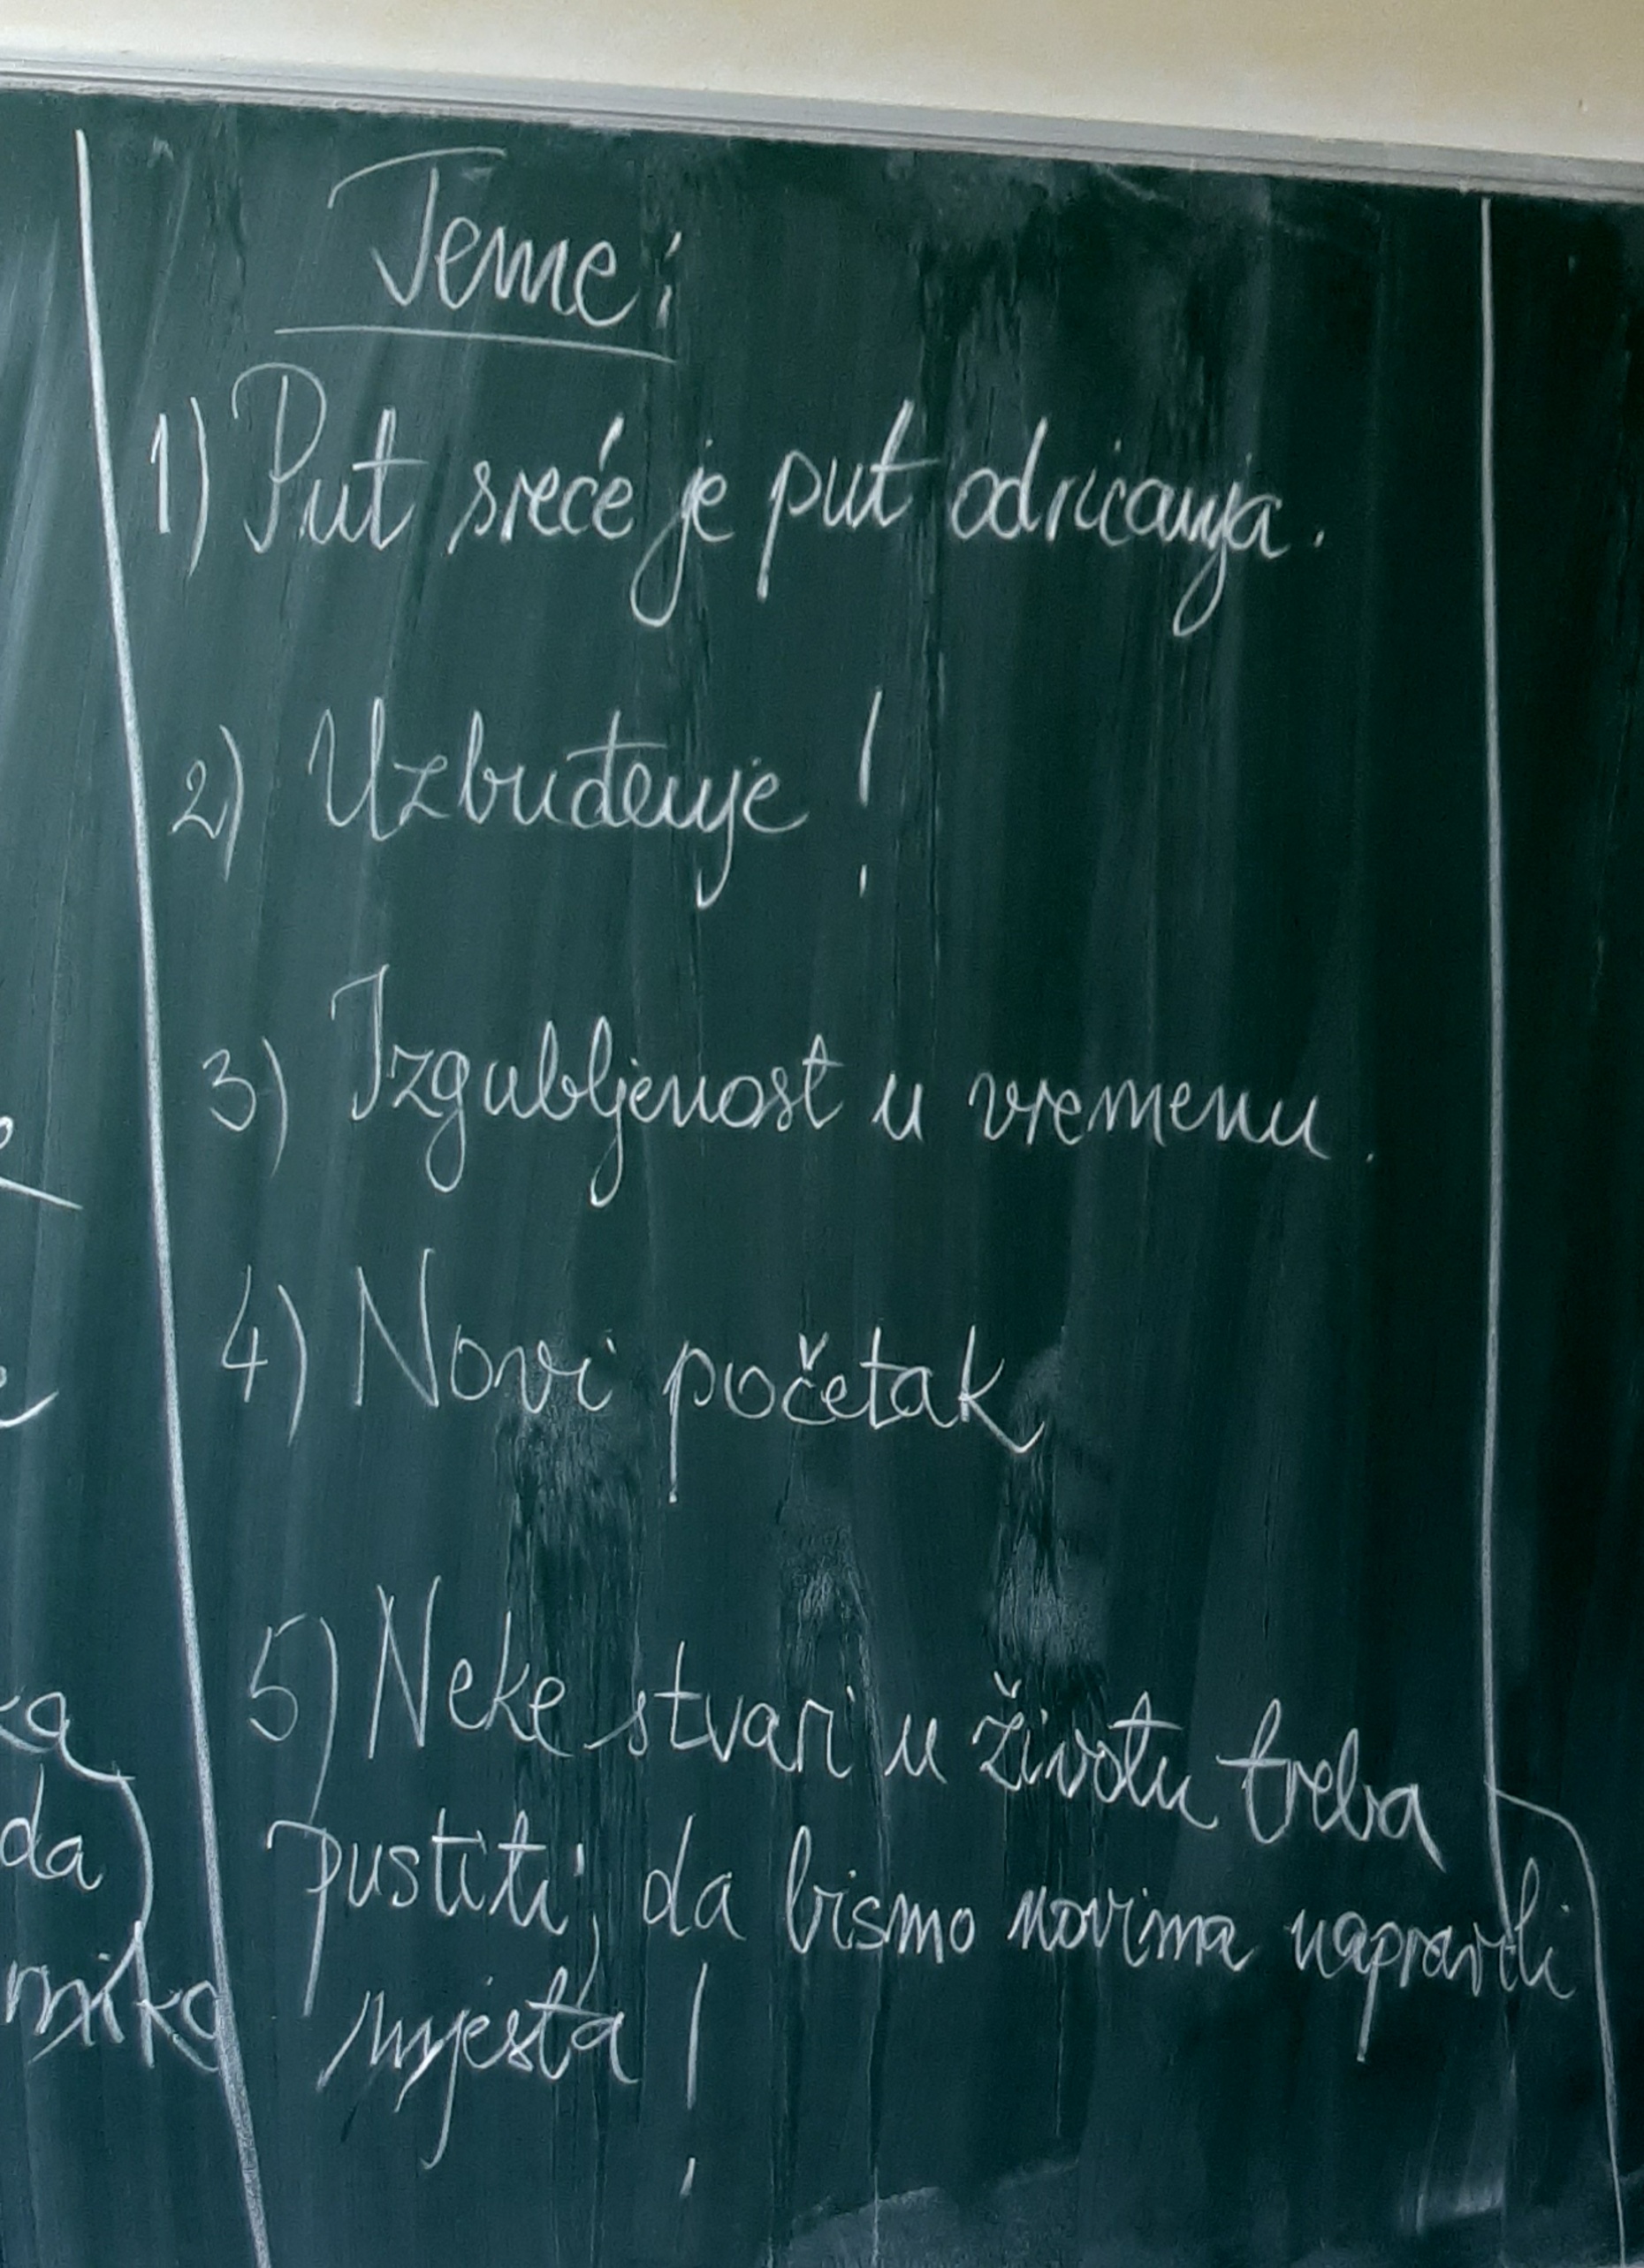 Teme:
1) Put sreće je put odricanja.
2) Uzbuđenje!
3) Izgubljenost u vremenu.
4) Novi početak
5) Neke stvari u životu treba
pustiti, da bismo novima napravili
mjesta!
ka
da)